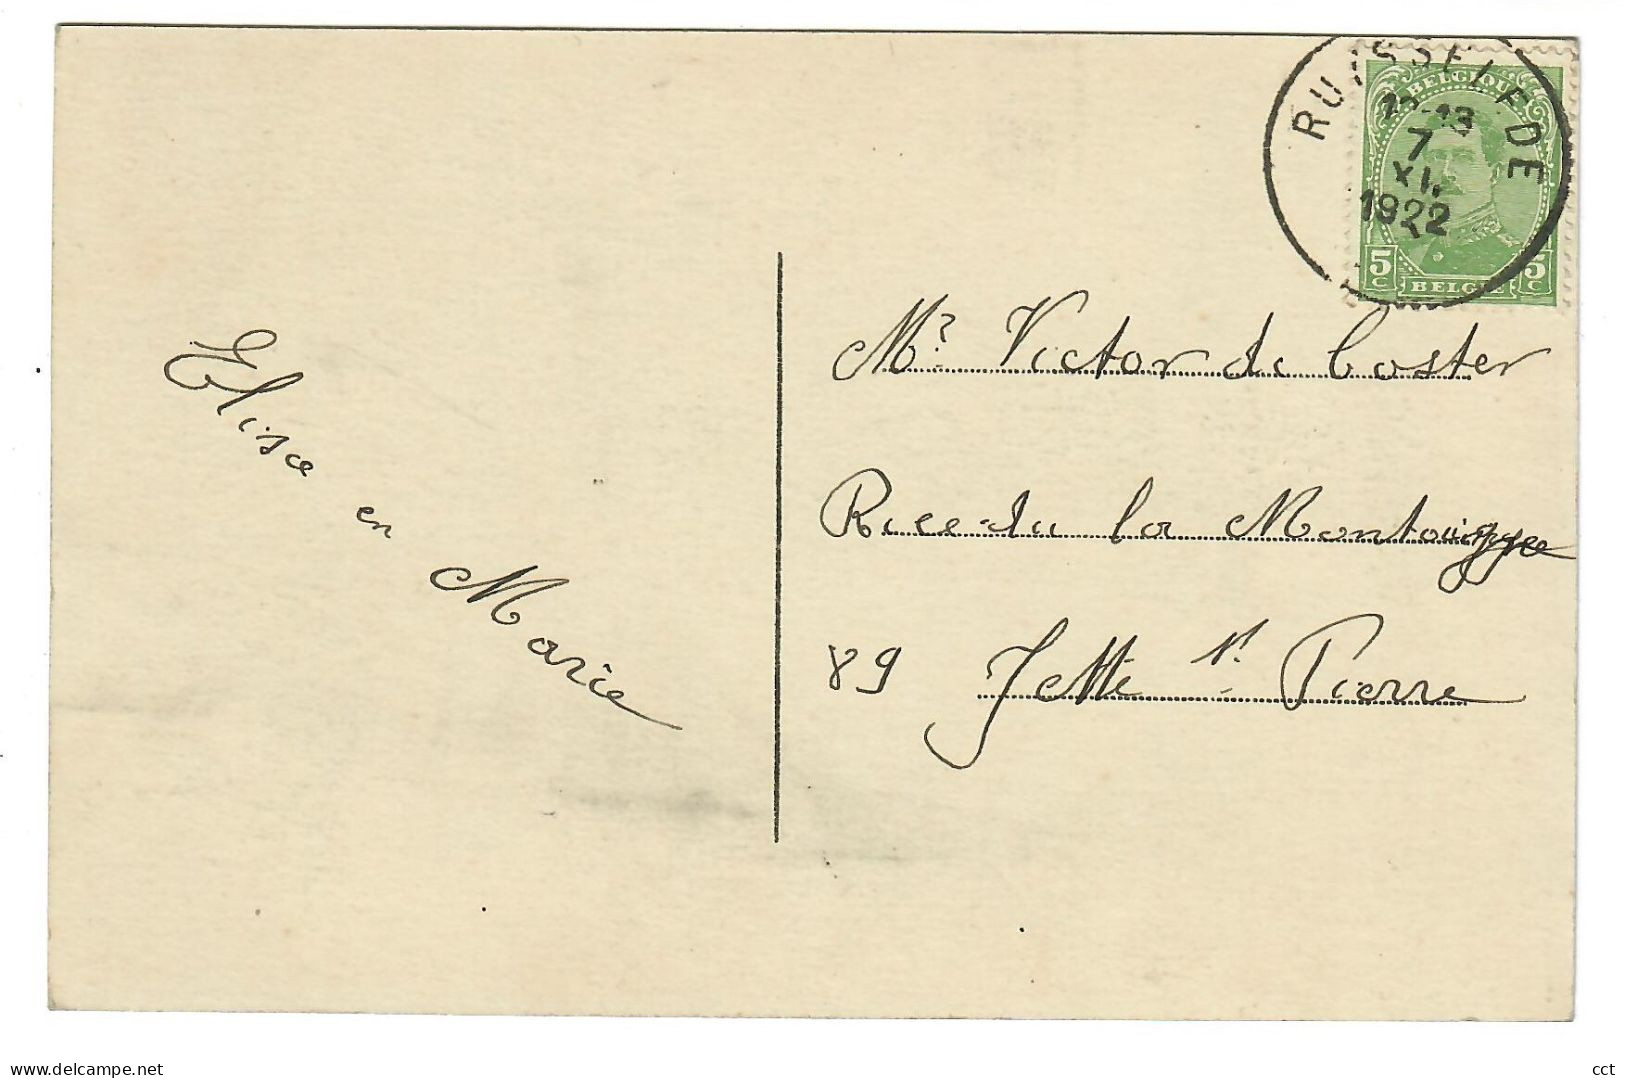 RUISSELEDE
BELGIQUE
12-13
7
XI.
1922
5 C 5 C
BELGIE
Elisa en Marie
Mr Victor de Coster
Rue du la
89 Jette St. Pierre
delcampe.net
cct